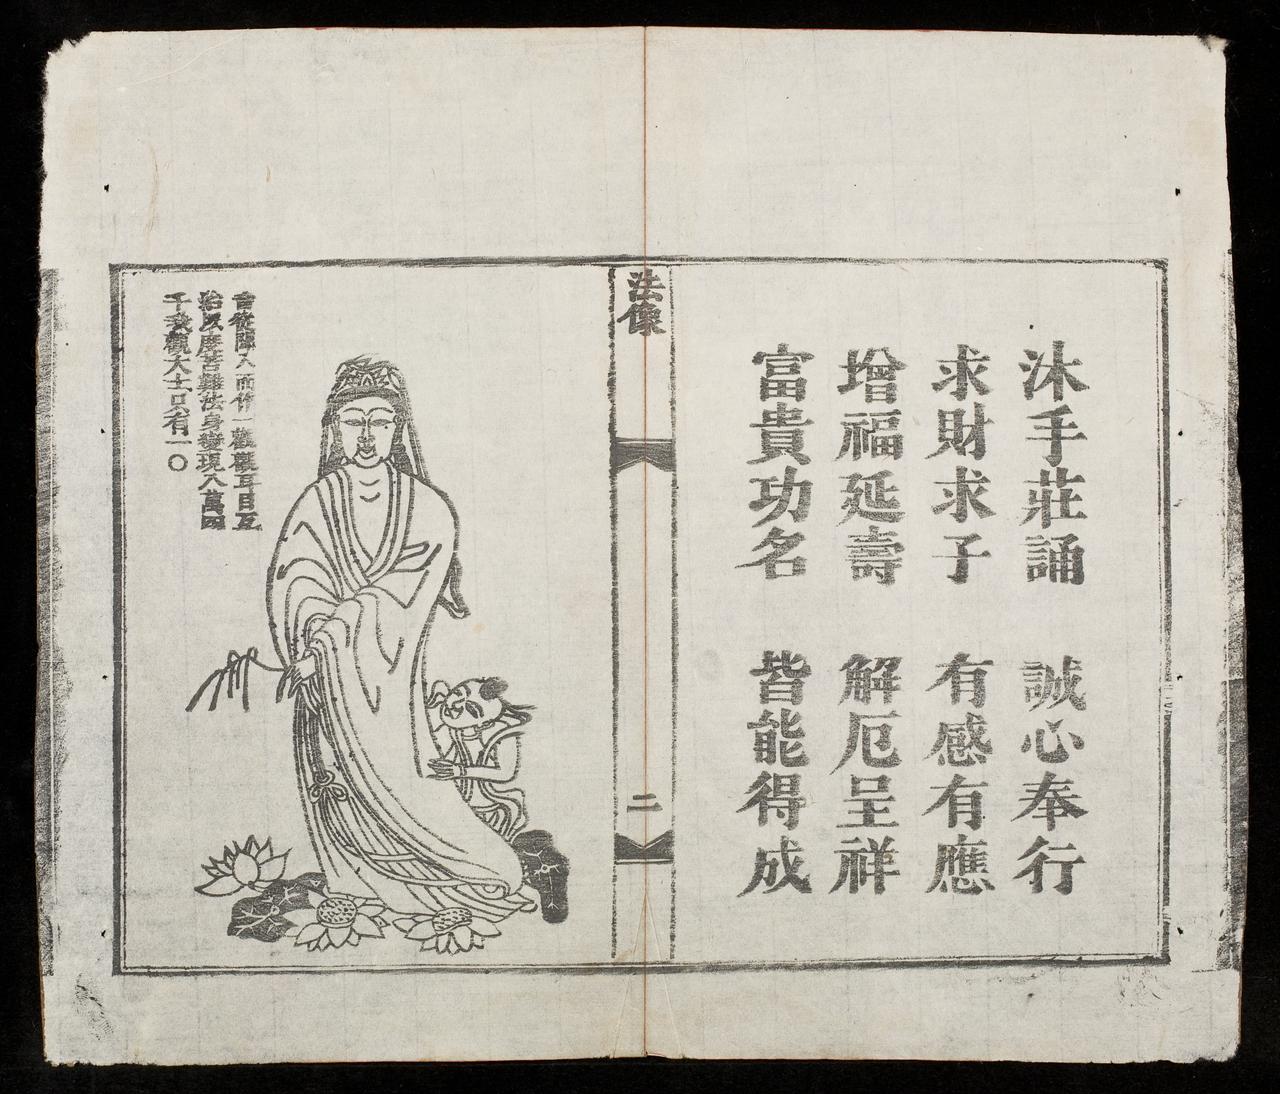 沐手莊誦 誠心奉行
求財求子 有感有應
增福延壽 解厄呈祥
富貴功名 皆能得成
法像
二
音從陣入而作一觀觀耳目互
治以度苦難法身變現八萬四
千我觀大士只有一〇